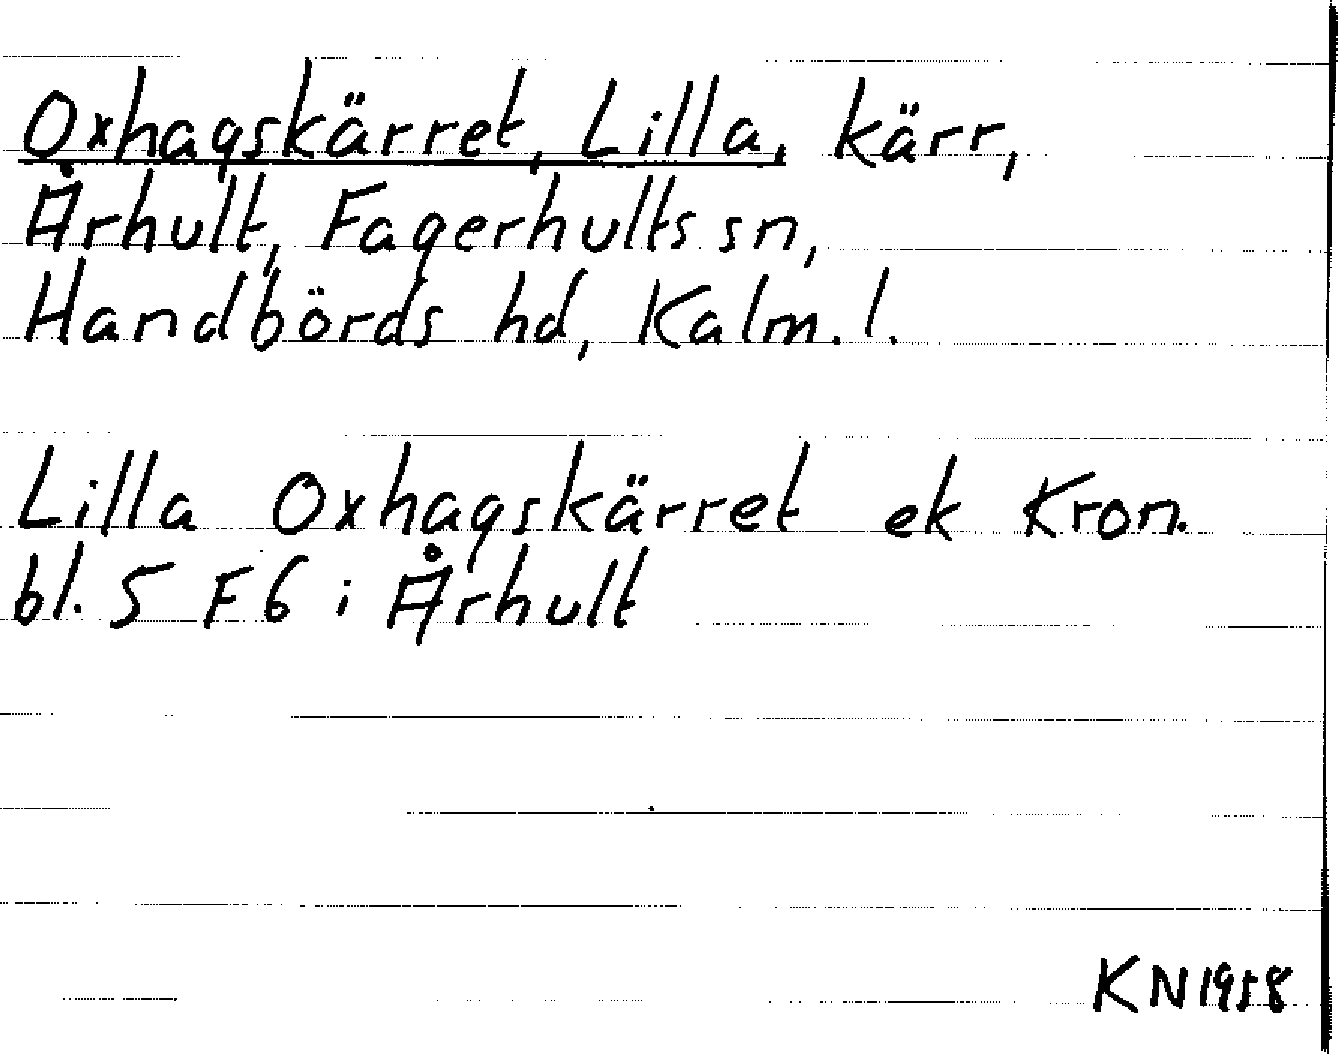 Oxhagskärret, Lilla, kärr,
Århult, Fagerhults sn,
Handbörds hd, Kalm. l.
Lilla Oxhagskärret ek Kron.
bl. 5 F 6 i Århult
KN 1958